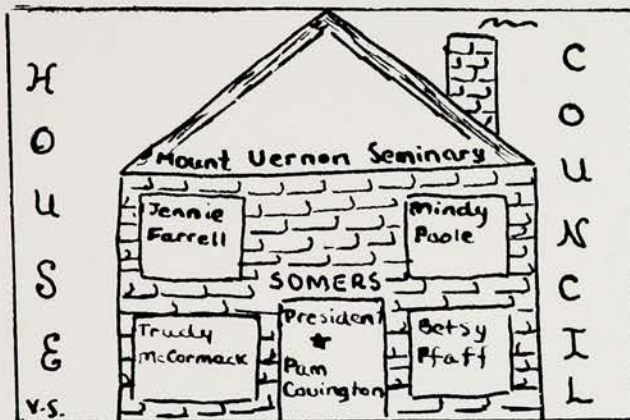 HOUSE
COUNCIL
Mount Vernon Seminary
Jennie
Farrell
Mindy
Poole
SOMERS
Trudy
McCormack
President
Pam
Covington
Betsy
Pfaff
V.S.